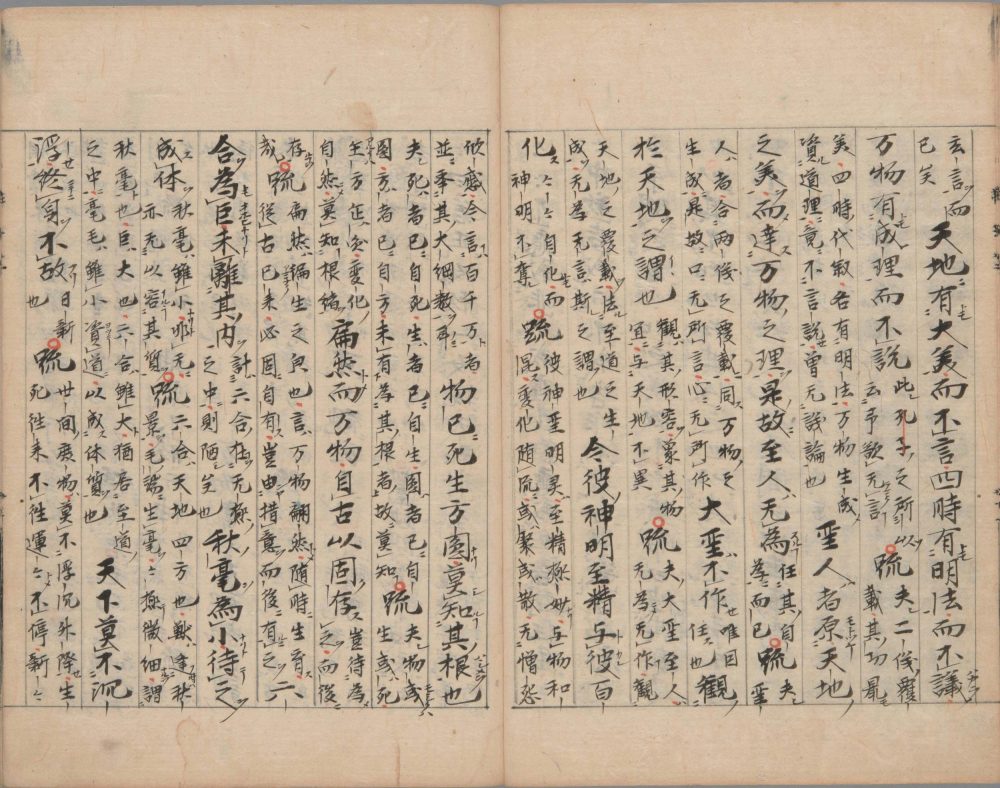 玄言而已矣天地有大美而不言四時有明法而不議
万物有成理而不説此孔子之所以云予欲无言疏夫二儀覆載其功最
美四時代敘各有明法万物生成資道理竟不言説曾无議論也聖人者原天地
之美而達万物之理是故至人无為任其自為而已疏夫聖
人者合兩儀之覆載同万物之生成是故口无所言心无所作大聖不作唯因任也觀
於天地之謂也觀其形容象其物宜与天地不異疏夫大聖至人无為无作觀
天地之覆載法至道之生成无為无言斯之謂也今彼神明至精与彼百
化々々自化而神明不奪疏彼神聖明灵至精極妙与物和混変化随流或聚或散无憎
欣慼今言百千万者並举其大綱数耳物已死生方圓莫知其根也
夫死者已自死生者已自生圓者已自圓方者已自方未有為其根者故莫知疏夫物或生或死
乍方乍圓変化自然莫知根緒扁然而万物自古以固存豈待為之而後
存哉疏扁然徧生之皃也言万物翩然随時生育從古已来必固自有豈由措意而後有之六
合為巨未離其内計六合在无極之中則陋矣也秋毫為小待之
成体秋毫雖小非无亦无以容其質疏六合天地四方也獣逢秋景毛端生毫々極微細謂
秋毫也巨大也六合雖大猶居至道之中毫毛雖小資道以成体質也天下莫不沉
浮終身不故日新也疏世間庶物莫不浮沉升降生死往来不住運々不停新々